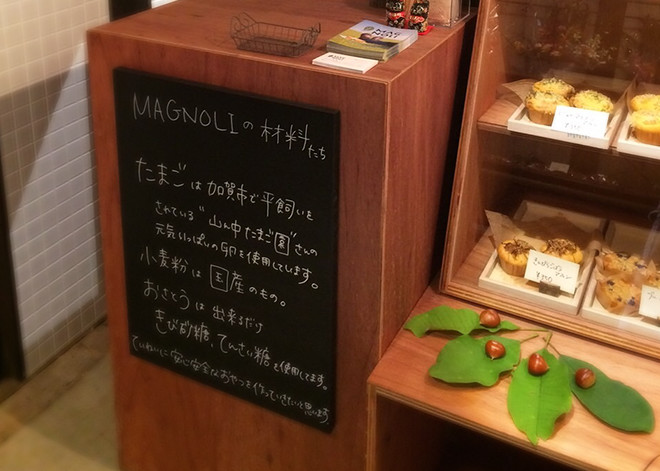 MAGNOLIの材料たち
たまごは加賀市で平飼いを
されている"山ん中たまご園"さんの
元気いっぱいの卵を使用しています。
小麦粉は国産のもの。
おさとうは出来るだけ
きび砂糖、てんさい糖を使用してます。
ていねいに安心安全なおやつを作っていきたいと思います。